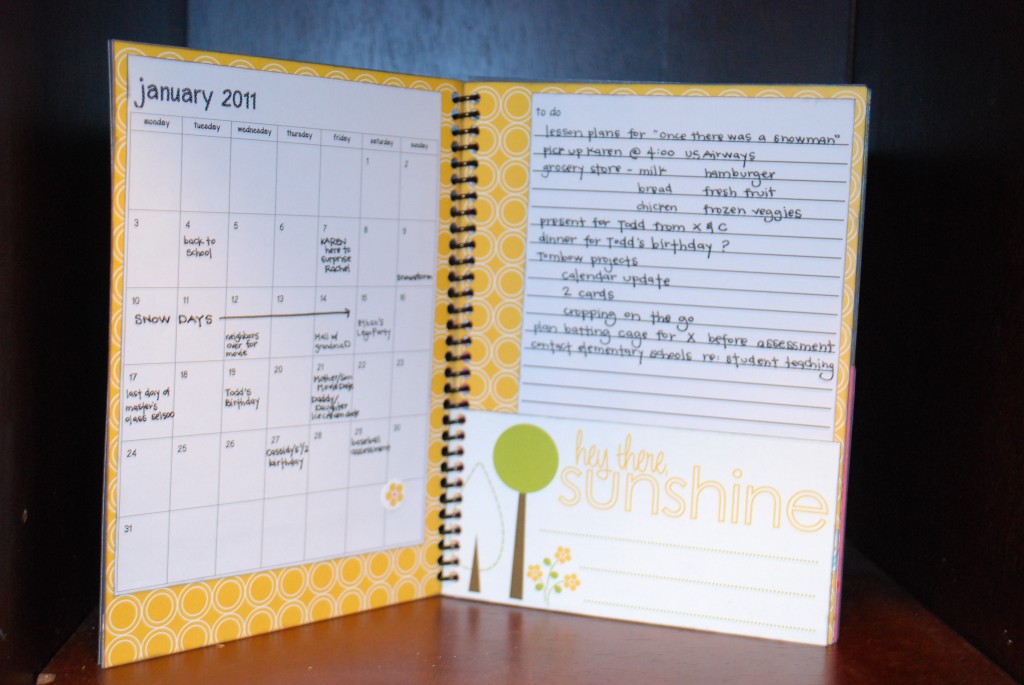 january 2011
monday tuesday wednesday thursday friday saturday sunday
1 2
3 4 5 6 7 8 9
back to
school
KAREN
here to
surprise
Rachel
snowstorm
10 11 12 13 14 15 16
SNOW DAYS
neighbors
over for
movie
Mall w/
grandma D
Lego Party
17 18 19 20 21 22 23
last day of
master's
class
Todd's
Birthday
Mother/Son
Movie Date
Daddy/
Daughter
ice cream date
24 25 26 27 28 29 30
Cassidy's 1/2
birthday
baseball
assessment
31
to do
lesson plans for "once there was a snowman"
pick up Karen @ 4:00 US Airways
grocery store - milk hamburger
bread fresh fruit
chicken frozen veggies
present for Todd from X & C
dinner for Todd's birthday ?
Tombow projects
calendar update
2 cards
cropping on the go
plan batting cage for X before assessment
contact elementary schools re: student teaching
hey there,
sunshine